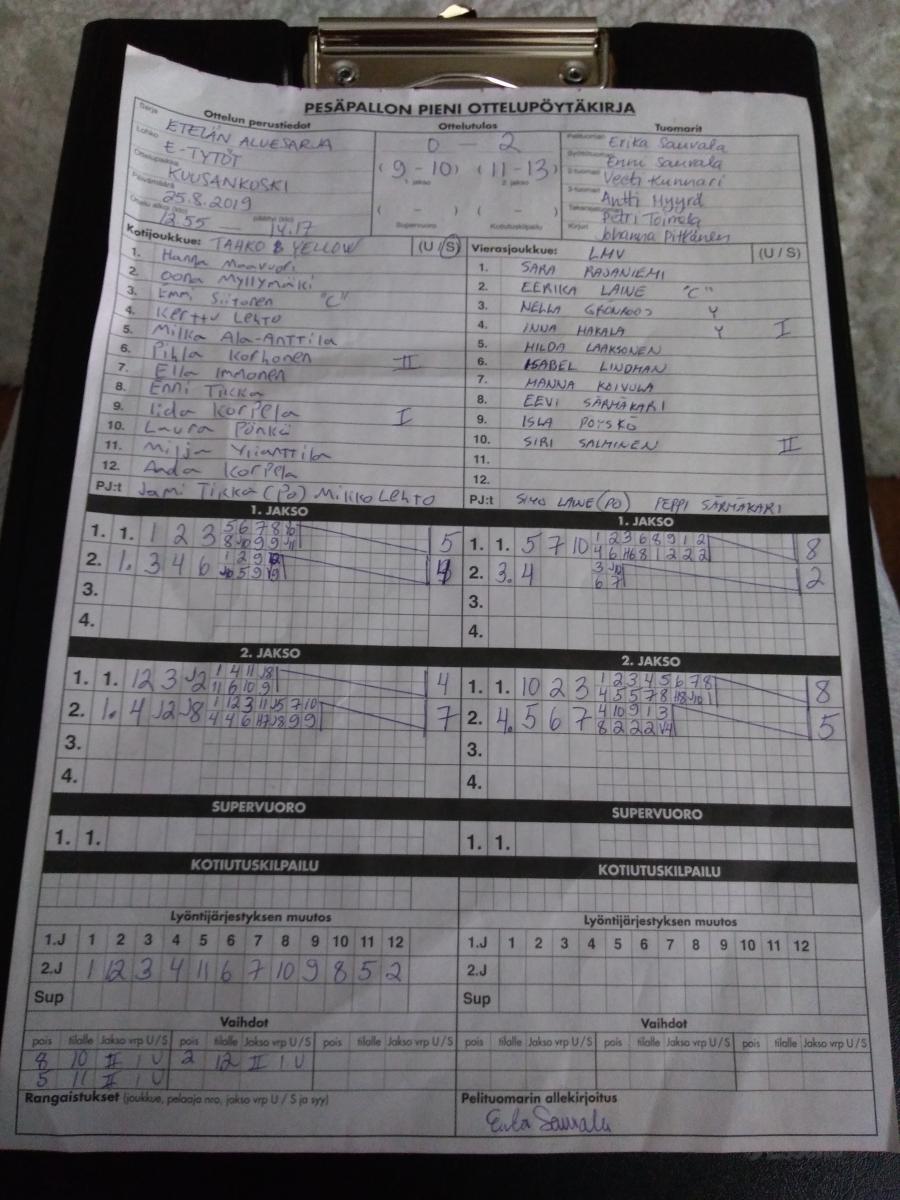 PESÄPALLON PIENI OTTELUPÖYTÄKIRJA
Ottelun perustiedot Ottelutulos Tuomarit
Sarja ETELÄN ALUESARJA
Lohko E-TYTÖT
Ottelupaikka KUUSANKOSKI
Päivämäärä 25.8.2019
Ottelu alkoi (klo) 12.55 — päättyi (klo) 14.17
0 — 2
(9 - 10) (11 - 13)
1. jakso 2. jakso
( - ) ( - )
Supervuoro Kotiutuskilpailu
Pelituomari Erika Sauvala
Syöttötuomari Enni Sauvala
2-tuomari Veeti Kunnari
3-tuomari Antti Myyrä
Takarajatuomari Petri Toimela
Kirjuri Johanna Pitkänen
Kotijoukkue: TAHKO B YELLOW (U / S)
1. Hanna Maavuori
2. Oona Myllymäki
3. Emmi Siitonen "C"
4. Kerttu Lehto
5. Milka Ala-Anttila
6. Pihla Korhonen II
7. Ella Immonen
8. Enni Tikka
9. Iida Korpela I
10. Laura Pönkä
11. Milja Ylianttila
12. Aada Korpela
PJ:t Jami Tikka (PO) Mikko Lehto
Vierasjoukkue: LMV (U / S)
1. SARA RAJANIEMI
2. EERIKA LAINE "C"
3. NELLA GRÖNROOS Y
4. INNA HAKALA Y I
5. HILDA LAAKSONEN
6. ISABEL LINDMAN
7. MANNA KOIVULA
8. EEVI SÄRMÄKARI
9. ISLA PÖYSKÖ
10. SIRI SALMINEN II
11.
12.
PJ:t SIMO LAINE (PO) PEPPI SÄRMÄKARI
1. JAKSO
1. 1. 1 2 3 5 6 7 8 10 5
2. 1. 3 4 6
3.
4.
1. JAKSO
1. 1. 5 7 10 1 2 3 6 8 9 1 2 8
2. 3. 4 2
3.
4.
2. JAKSO
1. 1. 12 3 4
11 6 10 9
2. 1. 4 7
3.
4.
2. JAKSO
1. 1. 10 2 3 1 2 3 4 5 6 7 8 8
2. 4. 5 6 7 4 10 9 1 3 5
3.
4.
SUPERVUORO
1. 1.
SUPERVUORO
1. 1.
KOTIUTUSKILPAILU
KOTIUTUSKILPAILU
Lyöntijärjestyksen muutos
1.J 1 2 3 4 5 6 7 8 9 10 11 12
2.J 1 12 3 4 11 6 7 10 9 8 5 2
Sup
Lyöntijärjestyksen muutos
1.J 1 2 3 4 5 6 7 8 9 10 11 12
2.J
Sup
Vaihdot
pois tilalle Jakso vrp U / S pois tilalle Jakso vrp U / S pois tilalle Jakso vrp U / S
8 10 II 1 U 2 12 II 1 U
5 11 II 1 U
Vaihdot
pois tilalle Jakso vrp U / S pois tilalle Jakso vrp U / S pois tilalle Jakso vrp U / S
Rangaistukset (joukkue, pelaaja nro, jakso vrp U / S ja syy)
Pelituomarin allekirjoitus
Erika Sauvala